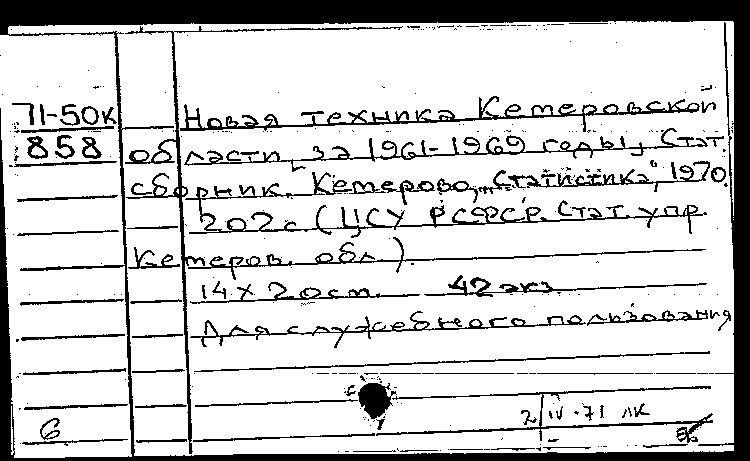 71-50к Новая техника Кемеровской
858 области за 1961-1969 годы, Стат.
сборник. Кемерово, "Статистика", 1970
202 с. (ЦСУ РСФСР. Стат. упр.
Кемеров. обл.).
14 х 20 см. 42 экз.
Для служебного пользования
2/IV-71 лк
6